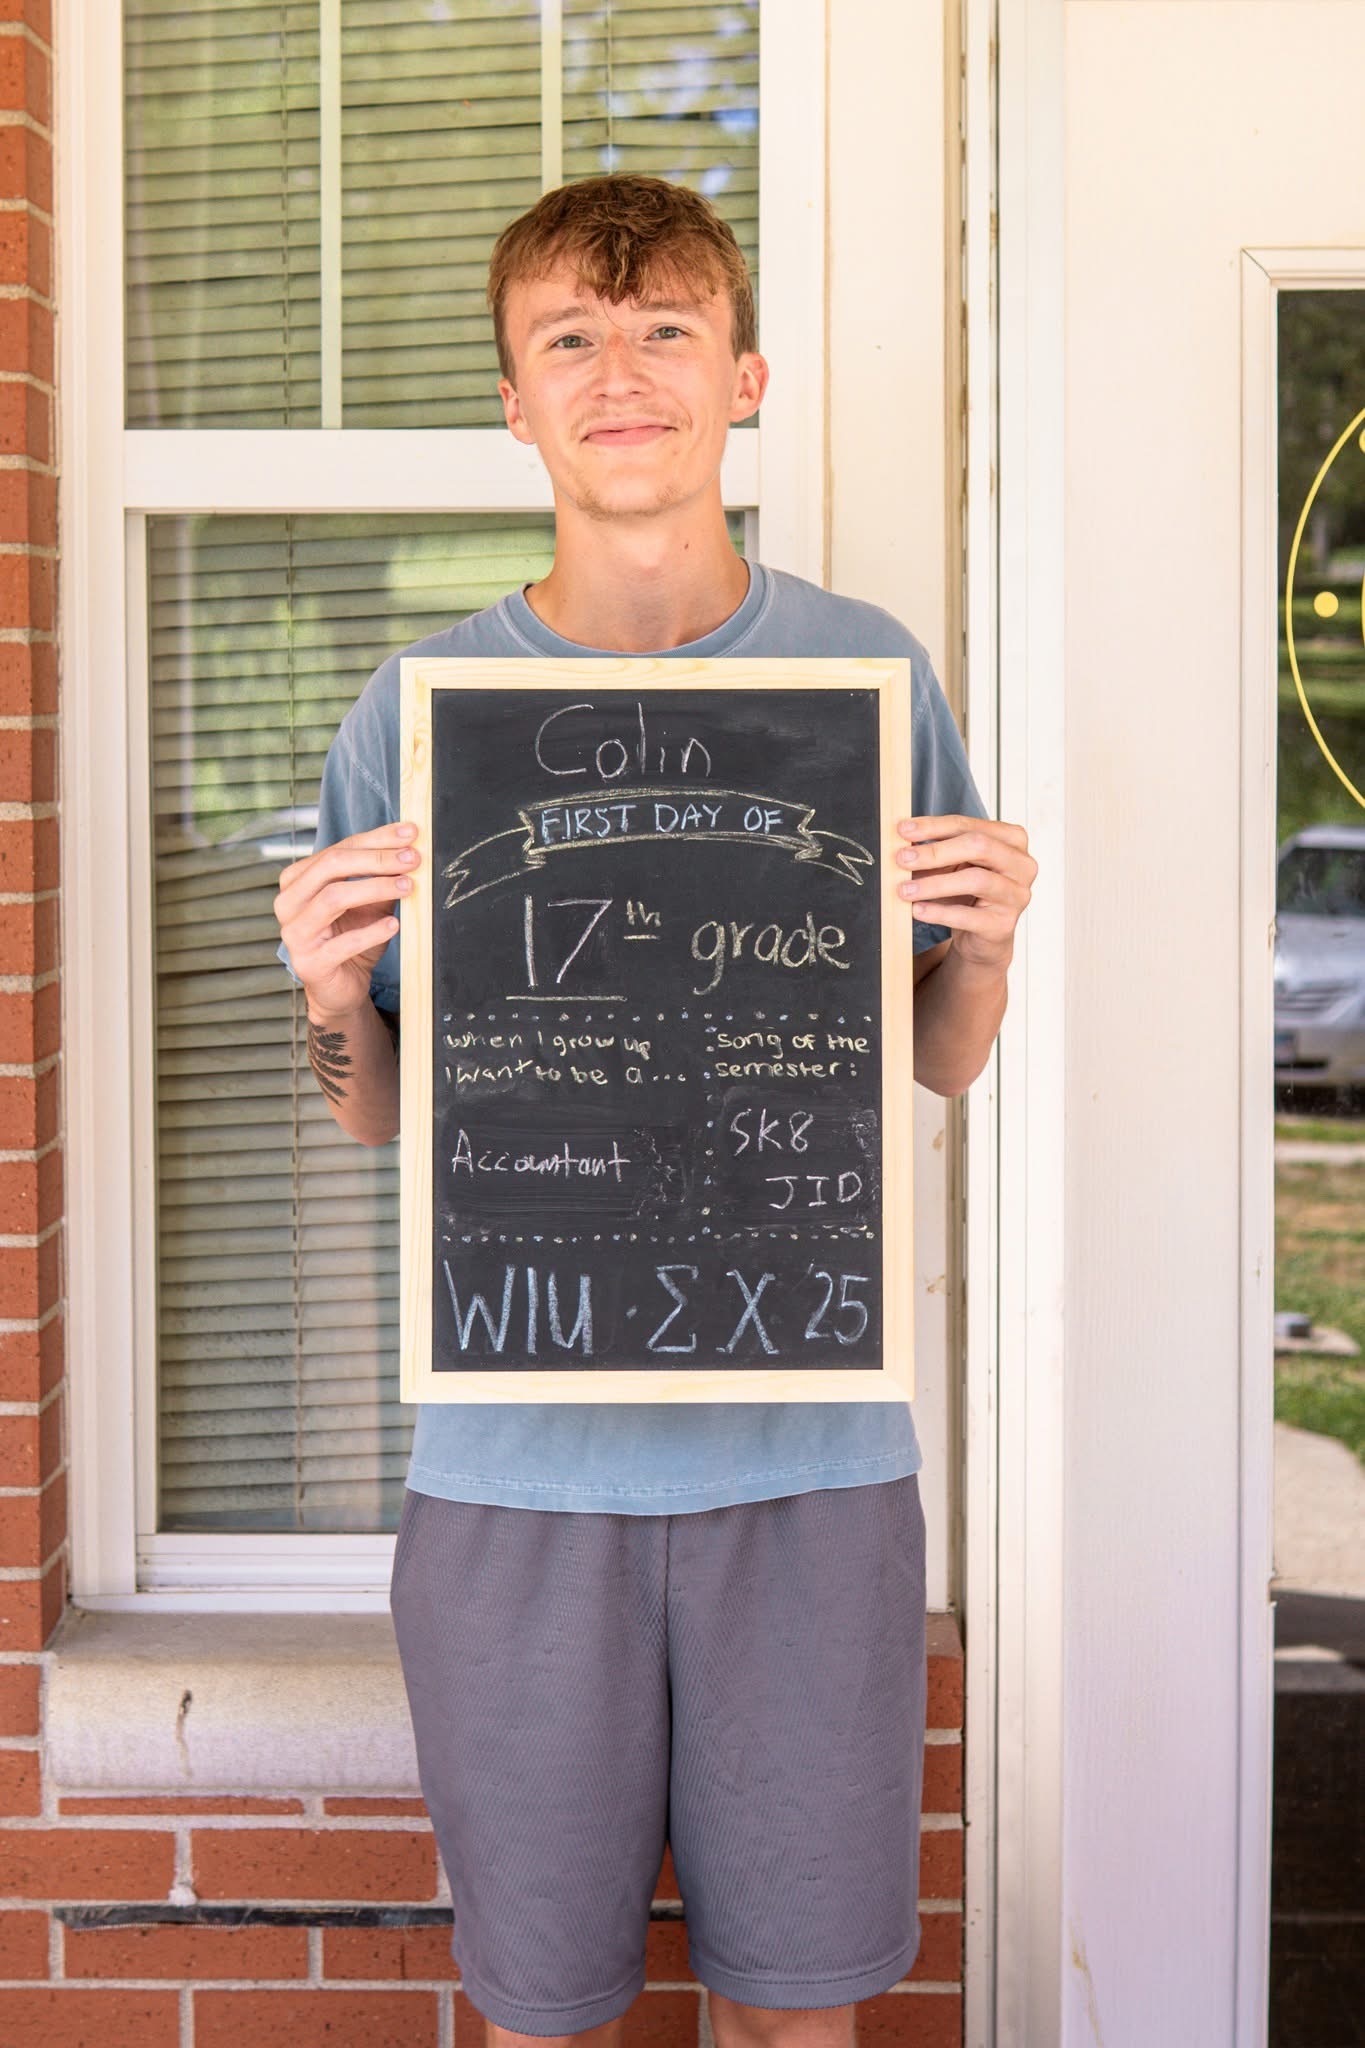 Colin
FIRST DAY OF
17th grade
when I grow up
I want to be a...
Accountant
song of the
semester:
SK8
JID
WIU · Σ X '25